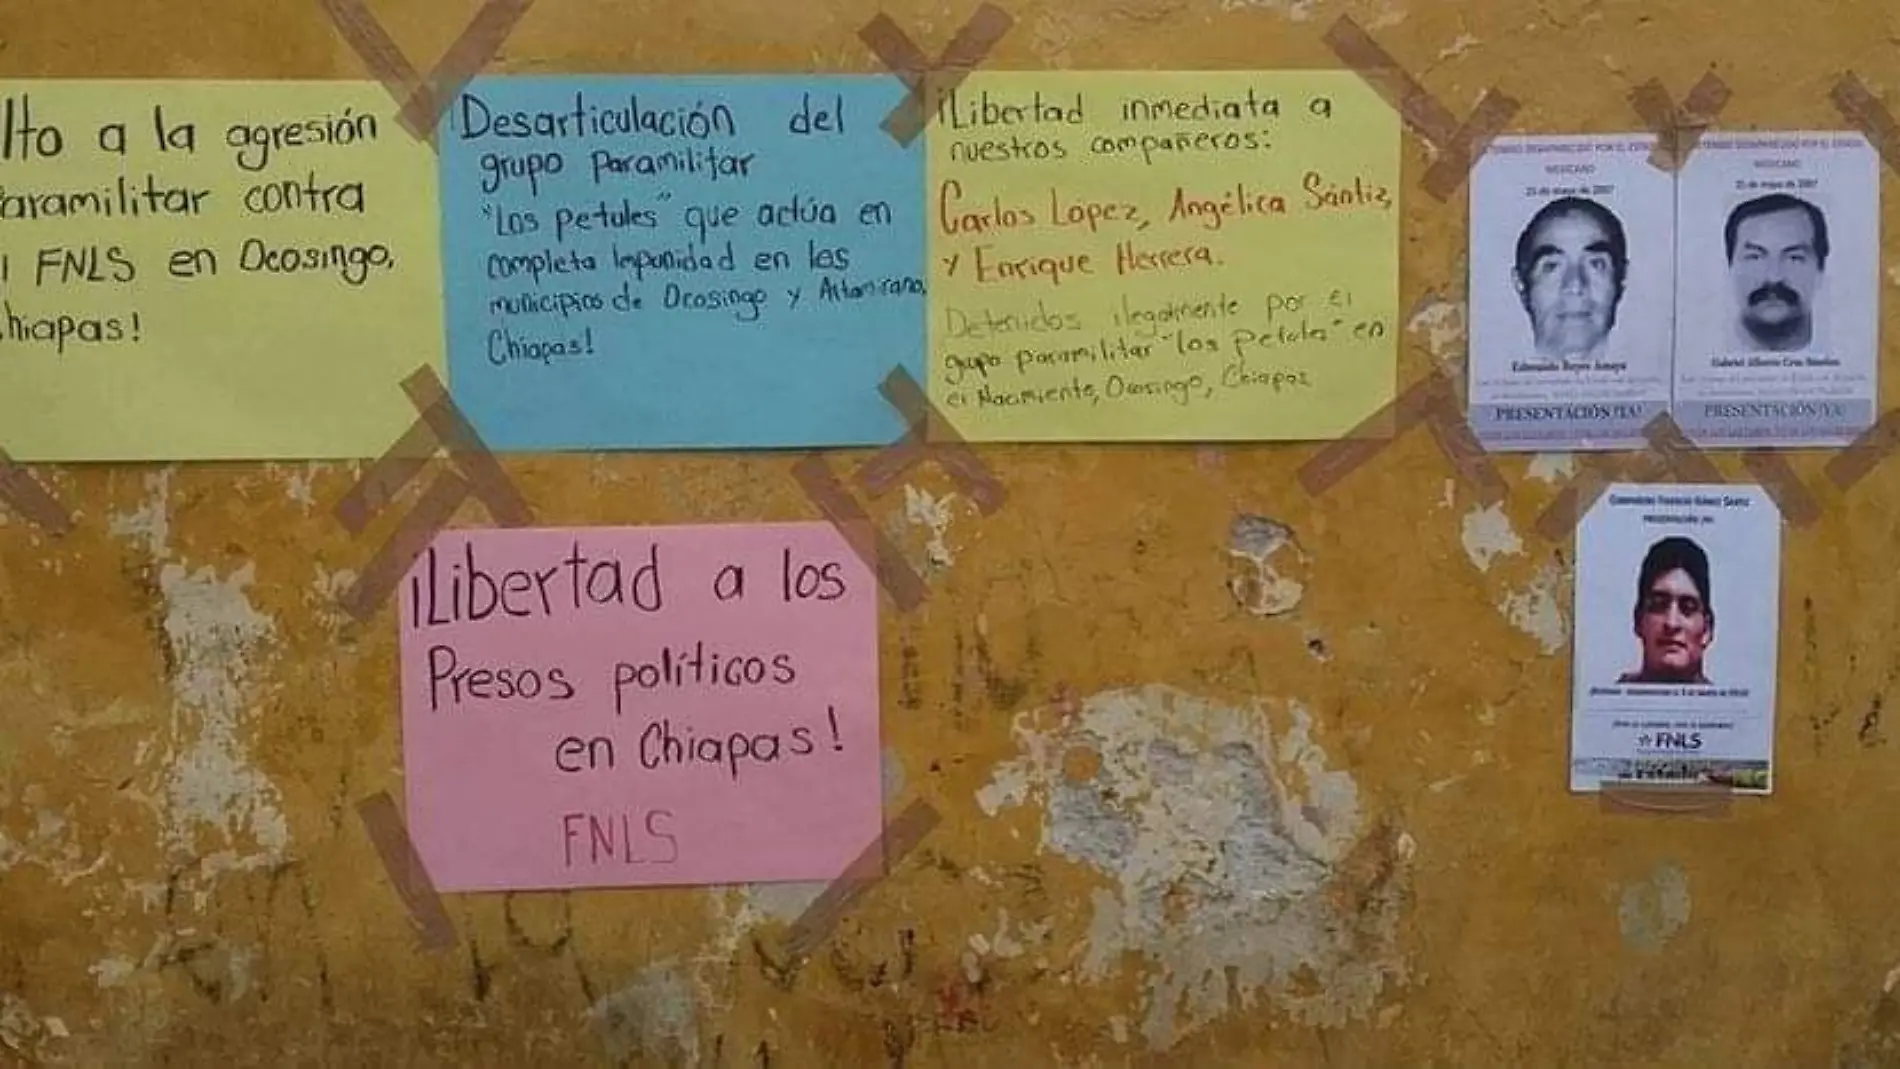 lto a la agresión
aramilitar contra
l FNLS en Ocosingo,
hiapas!
Desarticulación del
grupo paramilitar
"Los petules" que actúa en
completa impunidad en los
municipios de Ocosingo y Altamirano,
Chiapas!
¡Libertad inmediata a
nuestros compañeros:
Carlos López, Angélica Sántiz,
y Enrique Herrera.
Detenidos ilegalmente por el
grupo paramilitar "los petules" en
el Nacimiento, Ocosingo, Chiapas
¡Libertad a los
Presos políticos
en Chiapas!
FNLS
DESAPARECIDO POR EL ESTADO
MEXICANO
25 de mayo de 2007
Edmundo Reyes Amaya
PRESENTACIÓN ¡YA!
DESAPARECIDO POR EL ESTADO
MEXICANO
25 de mayo de 2007
Gabriel Alberto Cruz Sánchez
PRESENTACIÓN ¡YA!
PRESENTACIÓN ¡YA!
FNLS